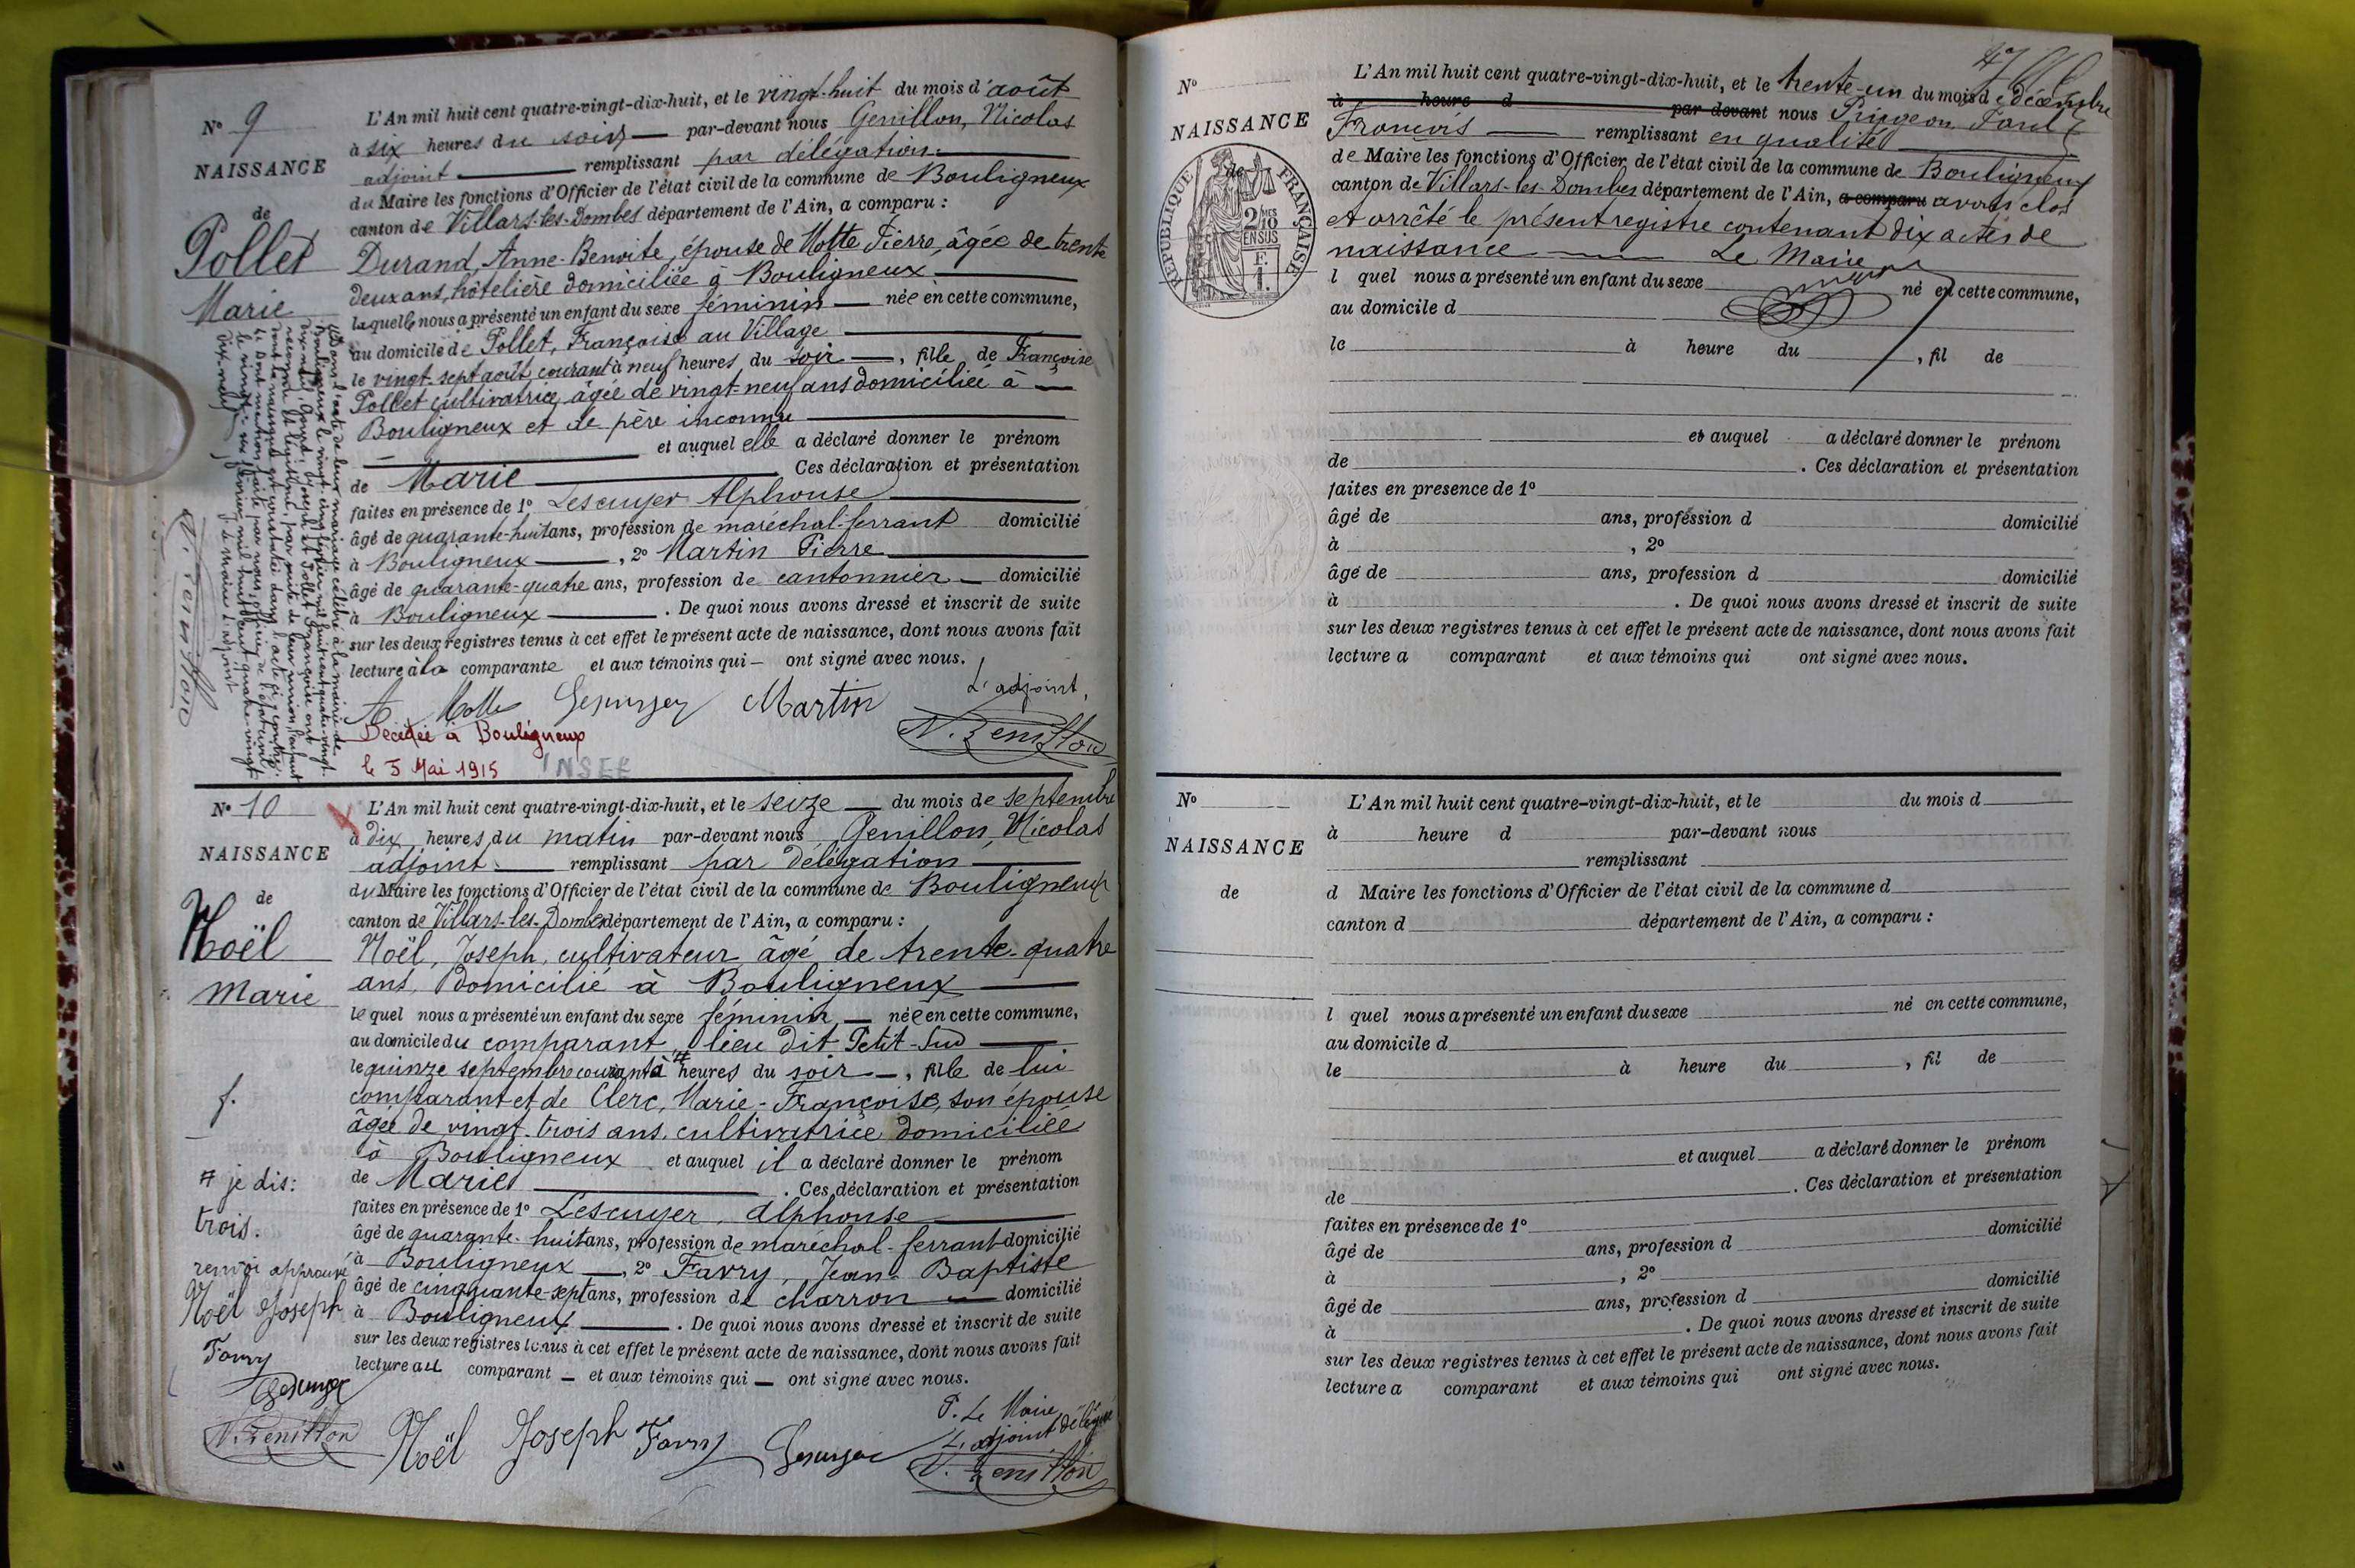 N° 9
NAISSANCE
de
Pollet
Marie
L'An mil huit cent quatre-vingt-dix-huit, et le vingt-huit du mois d'août
à six heures du soir — par-devant nous Genillon, Nicolas
adjoint — remplissant par délégation —
du Maire les fonctions d'Officier de l'état civil de la commune de Bouligneux
canton de Villars-les-Dombes département de l'Ain, a comparu :
Durand, Anne-Benoite, épouse de Motte Pierre, âgée de trente
deux ans, hôtelière domiciliée à Bouligneux —
laquelle nous a présenté un enfant du sexe féminin — née en cette commune,
au domicile de Pollet, Françoise au Village —
le vingt-sept août courant à neuf heures du soir —, fille de Françoise
Pollet cultivatrice âgée de vingt-neuf ans domiciliée à —
Bouligneux et de père inconnu —
— et auquel elle a déclaré donner le prénom
de Marie — Ces déclaration et présentation
faites en présence de 1° Lescuyer Alphonse —
âgé de quarante-huit ans, profession de maréchal-ferrant domicilié
à Bouligneux —, 2° Martin Pierre —
âgé de quarante-quatre ans, profession de cantonnier — domicilié
à Bouligneux — . De quoi nous avons dressé et inscrit de suite
sur les deux registres tenus à cet effet le présent acte de naissance, dont nous avons fait
lecture à la comparante et aux témoins qui — ont signé avec nous.
L'adjoint,
A Motte Lescuyer Martin
N. Genillon
Décédée à Bouligneux
le 5 Mai 1915 INSEE
N. Genillon
N° 10
NAISSANCE
de
Noël
Marie
f.
# je dis:
trois.
renvoi approuvé
Noël Joseph
Favry
Lescuyer
N. Genillon
L'An mil huit cent quatre-vingt-dix-huit, et le seize — du mois de septembre
à dix heures du matin par-devant nous Genillon, Nicolas
adjoint — remplissant par délégation —
du Maire les fonctions d'Officier de l'état civil de la commune de Bouligneux
canton de Villars-les-Dombes département de l'Ain, a comparu :
Noël, Joseph, cultivateur âgé de trente-quatre
ans, domicilié à Bouligneux —
lequel nous a présenté un enfant du sexe féminin — née en cette commune,
au domicile du comparant, lieu dit Petit-Sud —
le quinze septembre courant à # heures du soir —, fille de lui
comparant et de Clerc, Marie-Françoise, son épouse
âgée de vingt-trois ans, cultivatrice domiciliée
à Bouligneux et auquel il a déclaré donner le prénom
de Marie — . Ces déclaration et présentation
faites en présence de 1° Lescuyer, Alphonse —
âgé de quarante-huit ans, profession de maréchal-ferrant domicilié
à Bouligneux —, 2° Favry, Jean-Baptiste
âgé de cinquante-sept ans, profession de charron — domicilié
à Bouligneux — . De quoi nous avons dressé et inscrit de suite
sur les deux registres tenus à cet effet le présent acte de naissance, dont nous avons fait
lecture au comparant — et aux témoins qui — ont signé avec nous.
P. Le Maire,
L'adjoint délégué
Noël Joseph Favry Lescuyer
N. Genillon
N°
NAISSANCE
de
RÉPUBLIQUE FRANÇAISE
2/10 MES
EN SUS
F.
1.
L'An mil huit cent quatre-vingt-dix-huit, et le trente-un du mois de décembre
à heure d par devant nous Paul
François — remplissant en qualité —
de Maire les fonctions d'Officier de l'état civil de la commune de Bouligneux
canton de Villars-les-Dombes département de l'Ain, a comparu avons clos
et arrêté le présent registre contenant dix actes de
naissance — Le Maire
l quel nous a présenté un enfant du sexe né en cette commune,
au domicile d
le à heure du , fil de
et auquel a déclaré donner le prénom
de . Ces déclaration et présentation
faites en presence de 1°
âgé de ans, profession d domicilié
à , 2°
âgé de ans, profession d domicilié
à . De quoi nous avons dressé et inscrit de suite
sur les deux registres tenus à cet effet le présent acte de naissance, dont nous avons fait
lecture a comparant et aux témoins qui ont signé avec nous.
N°
NAISSANCE
de
L'An mil huit cent quatre-vingt-dix-huit, et le du mois d
à heure d par-devant nous
remplissant
d Maire les fonctions d'Officier de l'état civil de la commune d
canton d département de l'Ain, a comparu :
l quel nous a présenté un enfant du sexe né en cette commune,
au domicile d
le à heure du , fil de
et auquel a déclaré donner le prénom
de . Ces déclaration et présentation
faites en présence de 1°
âgé de ans, profession d domicilié
à , 2°
âgé de ans, profession d domicilié
à . De quoi nous avons dressé et inscrit de suite
sur les deux registres tenus à cet effet le présent acte de naissance, dont nous avons fait
lecture a comparant et aux témoins qui ont signé avec nous.